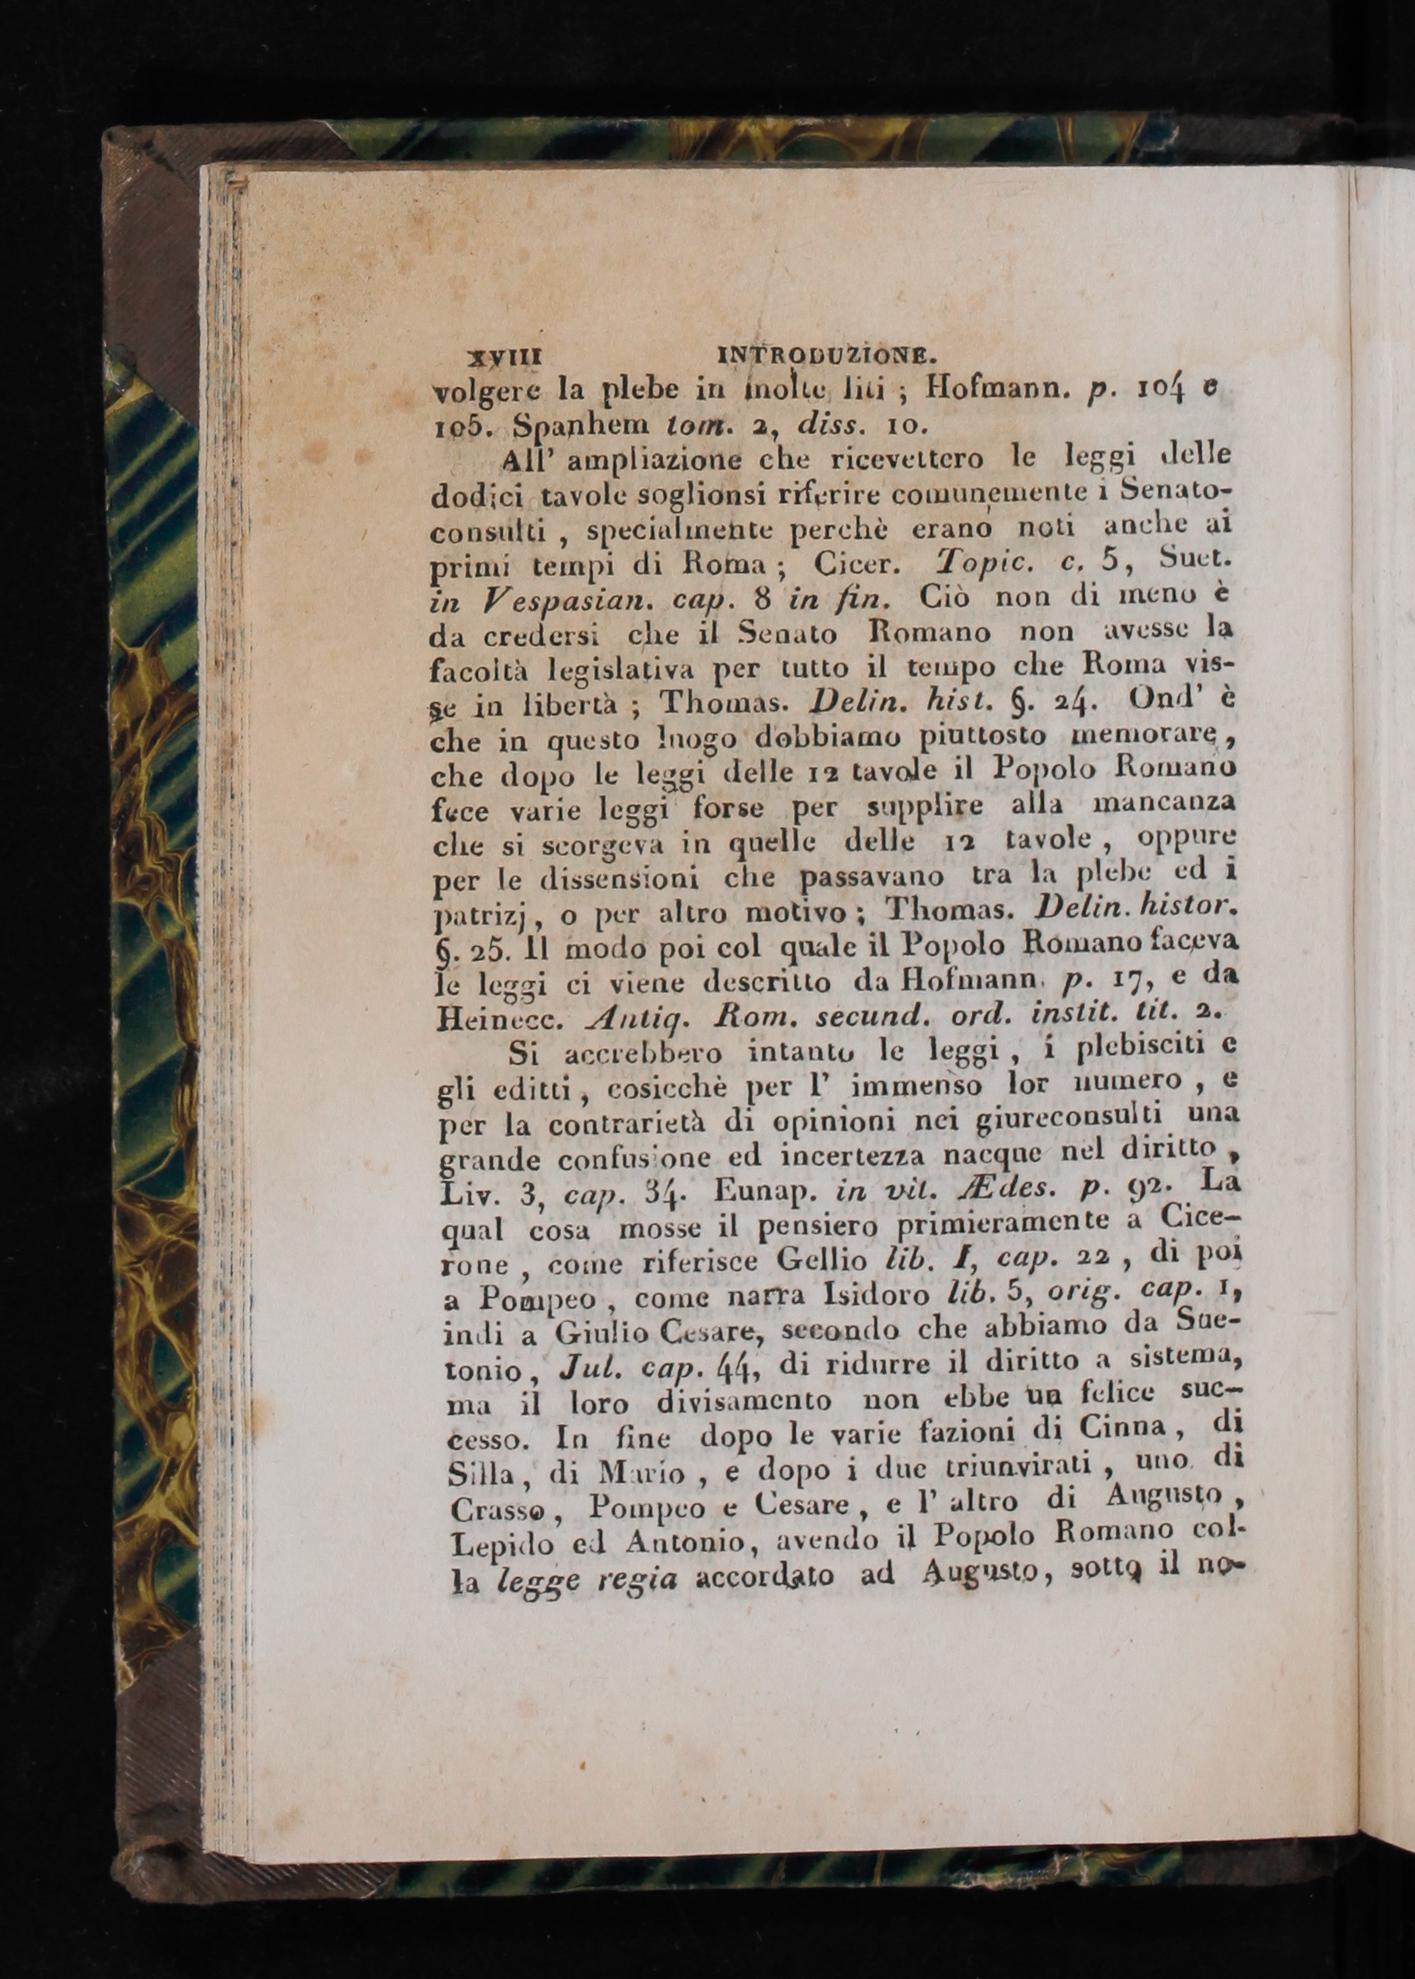 XVIII INTRODUZIONE.
volgere la plebe in molte liti ; Hofmann. p. 104 e
105. Spanhem tom. 2, diss. 10.
All' ampliazione che ricevettero le leggi delle
dodici tavole soglionsi riferire comunemente i Senato-
consulti , specialmente perchè erano noti anche ai
primi tempi di Roma ; Cicer. Topic. c. 5, Suet.
in Vespasian. cap. 8 in fin. Ciò non di meno è
da credersi che il Senato Romano non avesse la
facoltà legislativa per tutto il tempo che Roma vis-
se in libertà ; Thomas. Delin. hist. §. 24. Ond' è
che in questo luogo dobbiamo piuttosto memorare,
che dopo le leggi delle 12 tavole il Popolo Romano
fece varie leggi forse per supplire alla mancanza
che si scorgeva in quelle delle 12 tavole , oppure
per le dissensioni che passavano tra la plebe ed i
patrizj, o per altro motivo ; Thomas. Delin. histor.
§. 25. Il modo poi col quale il Popolo Romano faceva
le leggi ci viene descritto da Hofmann. p. 17, e da
Heinecc. Antiq. Rom. secund. ord. instit. tit. 2.
Si accrebbero intanto le leggi , i plebisciti e
gli editti , cosicchè per l' immenso lor numero , e
per la contrarietà di opinioni nei giureconsulti una
grande confusione ed incertezza nacque nel diritto ,
Liv. 3, cap. 34. Eunap. in vit. Ædes. p. 92. La
qual cosa mosse il pensiero primieramente a Cice-
rone , come riferisce Gellio lib. I, cap. 22 , di poi
a Pompeo , come narra Isidoro lib. 5, orig. cap. 1,
indi a Giulio Cesare, secondo che abbiamo da Sue-
tonio , Jul. cap. 44, di ridurre il diritto a sistema,
ma il loro divisamento non ebbe un felice suc-
cesso. In fine dopo le varie fazioni di Cinna , di
Silla , di Mario , e dopo i due triunvirati , uno di
Crasso , Pompeo e Cesare , e l' altro di Augusto ,
Lepido ed Antonio, avendo il Popolo Romano col-
la legge regia accordato ad Augusto, sotto il no-